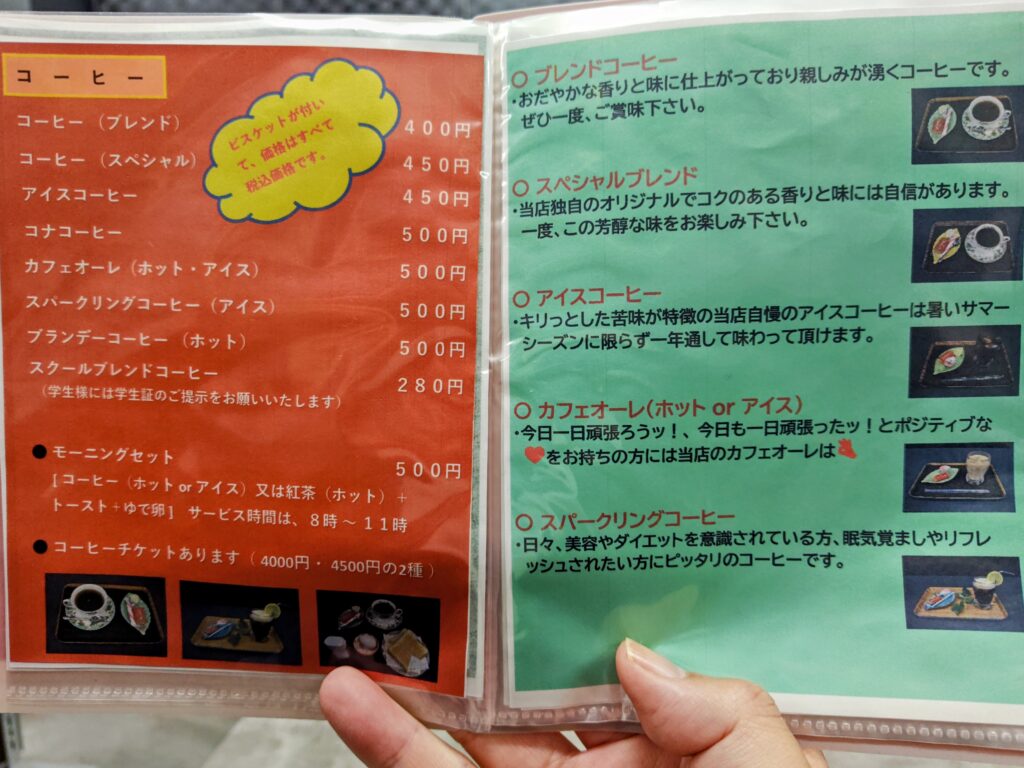 コーヒー
ビスケットが付い
て、価格はすべて
税込価格です。
コーヒー（ブレンド） ４００円
コーヒー（スペシャル） ４５０円
アイスコーヒー ４５０円
コナコーヒー ５００円
カフェオーレ（ホット・アイス） ５００円
スパークリングコーヒー（アイス） ５００円
ブランデーコーヒー（ホット） ５００円
スクールブレンドコーヒー ２８０円
（学生様には学生証のご提示をお願いいたします）
●モーニングセット ５００円
［コーヒー（ホット or アイス）又は紅茶（ホット）＋
トースト＋ゆで卵］ サービス時間は、８時～１１時
●コーヒーチケットあります（4000円・4500円の2種）
○ ブレンドコーヒー
・おだやかな香りと味に仕上がっており親しみが湧くコーヒーです。
ぜひ一度、ご賞味下さい。
○ スペシャルブレンド
・当店独自のオリジナルでコクのある香りと味には自信があります。
一度、この芳醇な味をお楽しみ下さい。
○ アイスコーヒー
・キリっとした苦味が特徴の当店自慢のアイスコーヒーは暑いサマー
シーズンに限らず一年通して味わって頂けます。
○ カフェオーレ（ホット or アイス）
・今日一日頑張ろうッ！、今日も一日頑張ったッ！とポジティブな
♥をお持ちの方には当店のカフェオーレは
○ スパークリングコーヒー
・日々、美容やダイエットを意識されている方、眠気覚ましやリフレ
ッシュされたい方にピッタリのコーヒーです。